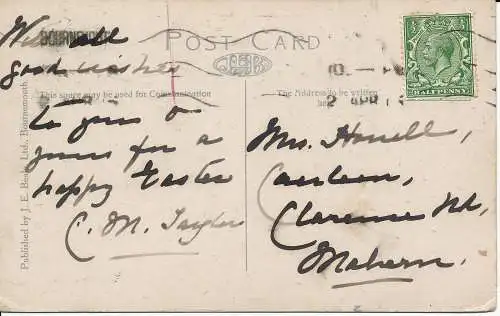 POST CARD
BOURNEMOUTH
With all
good wishes
This space may be used for Communication
to you &
yours for a
happy Easter
C. M. Taylor
The Address to be written
here
2 APR 1
HALFPENNY
Mrs. Howell,
Caerleon,
Clarence Rd,
Malvern.
Published by J. E. Beale, Ltd., Bournemouth